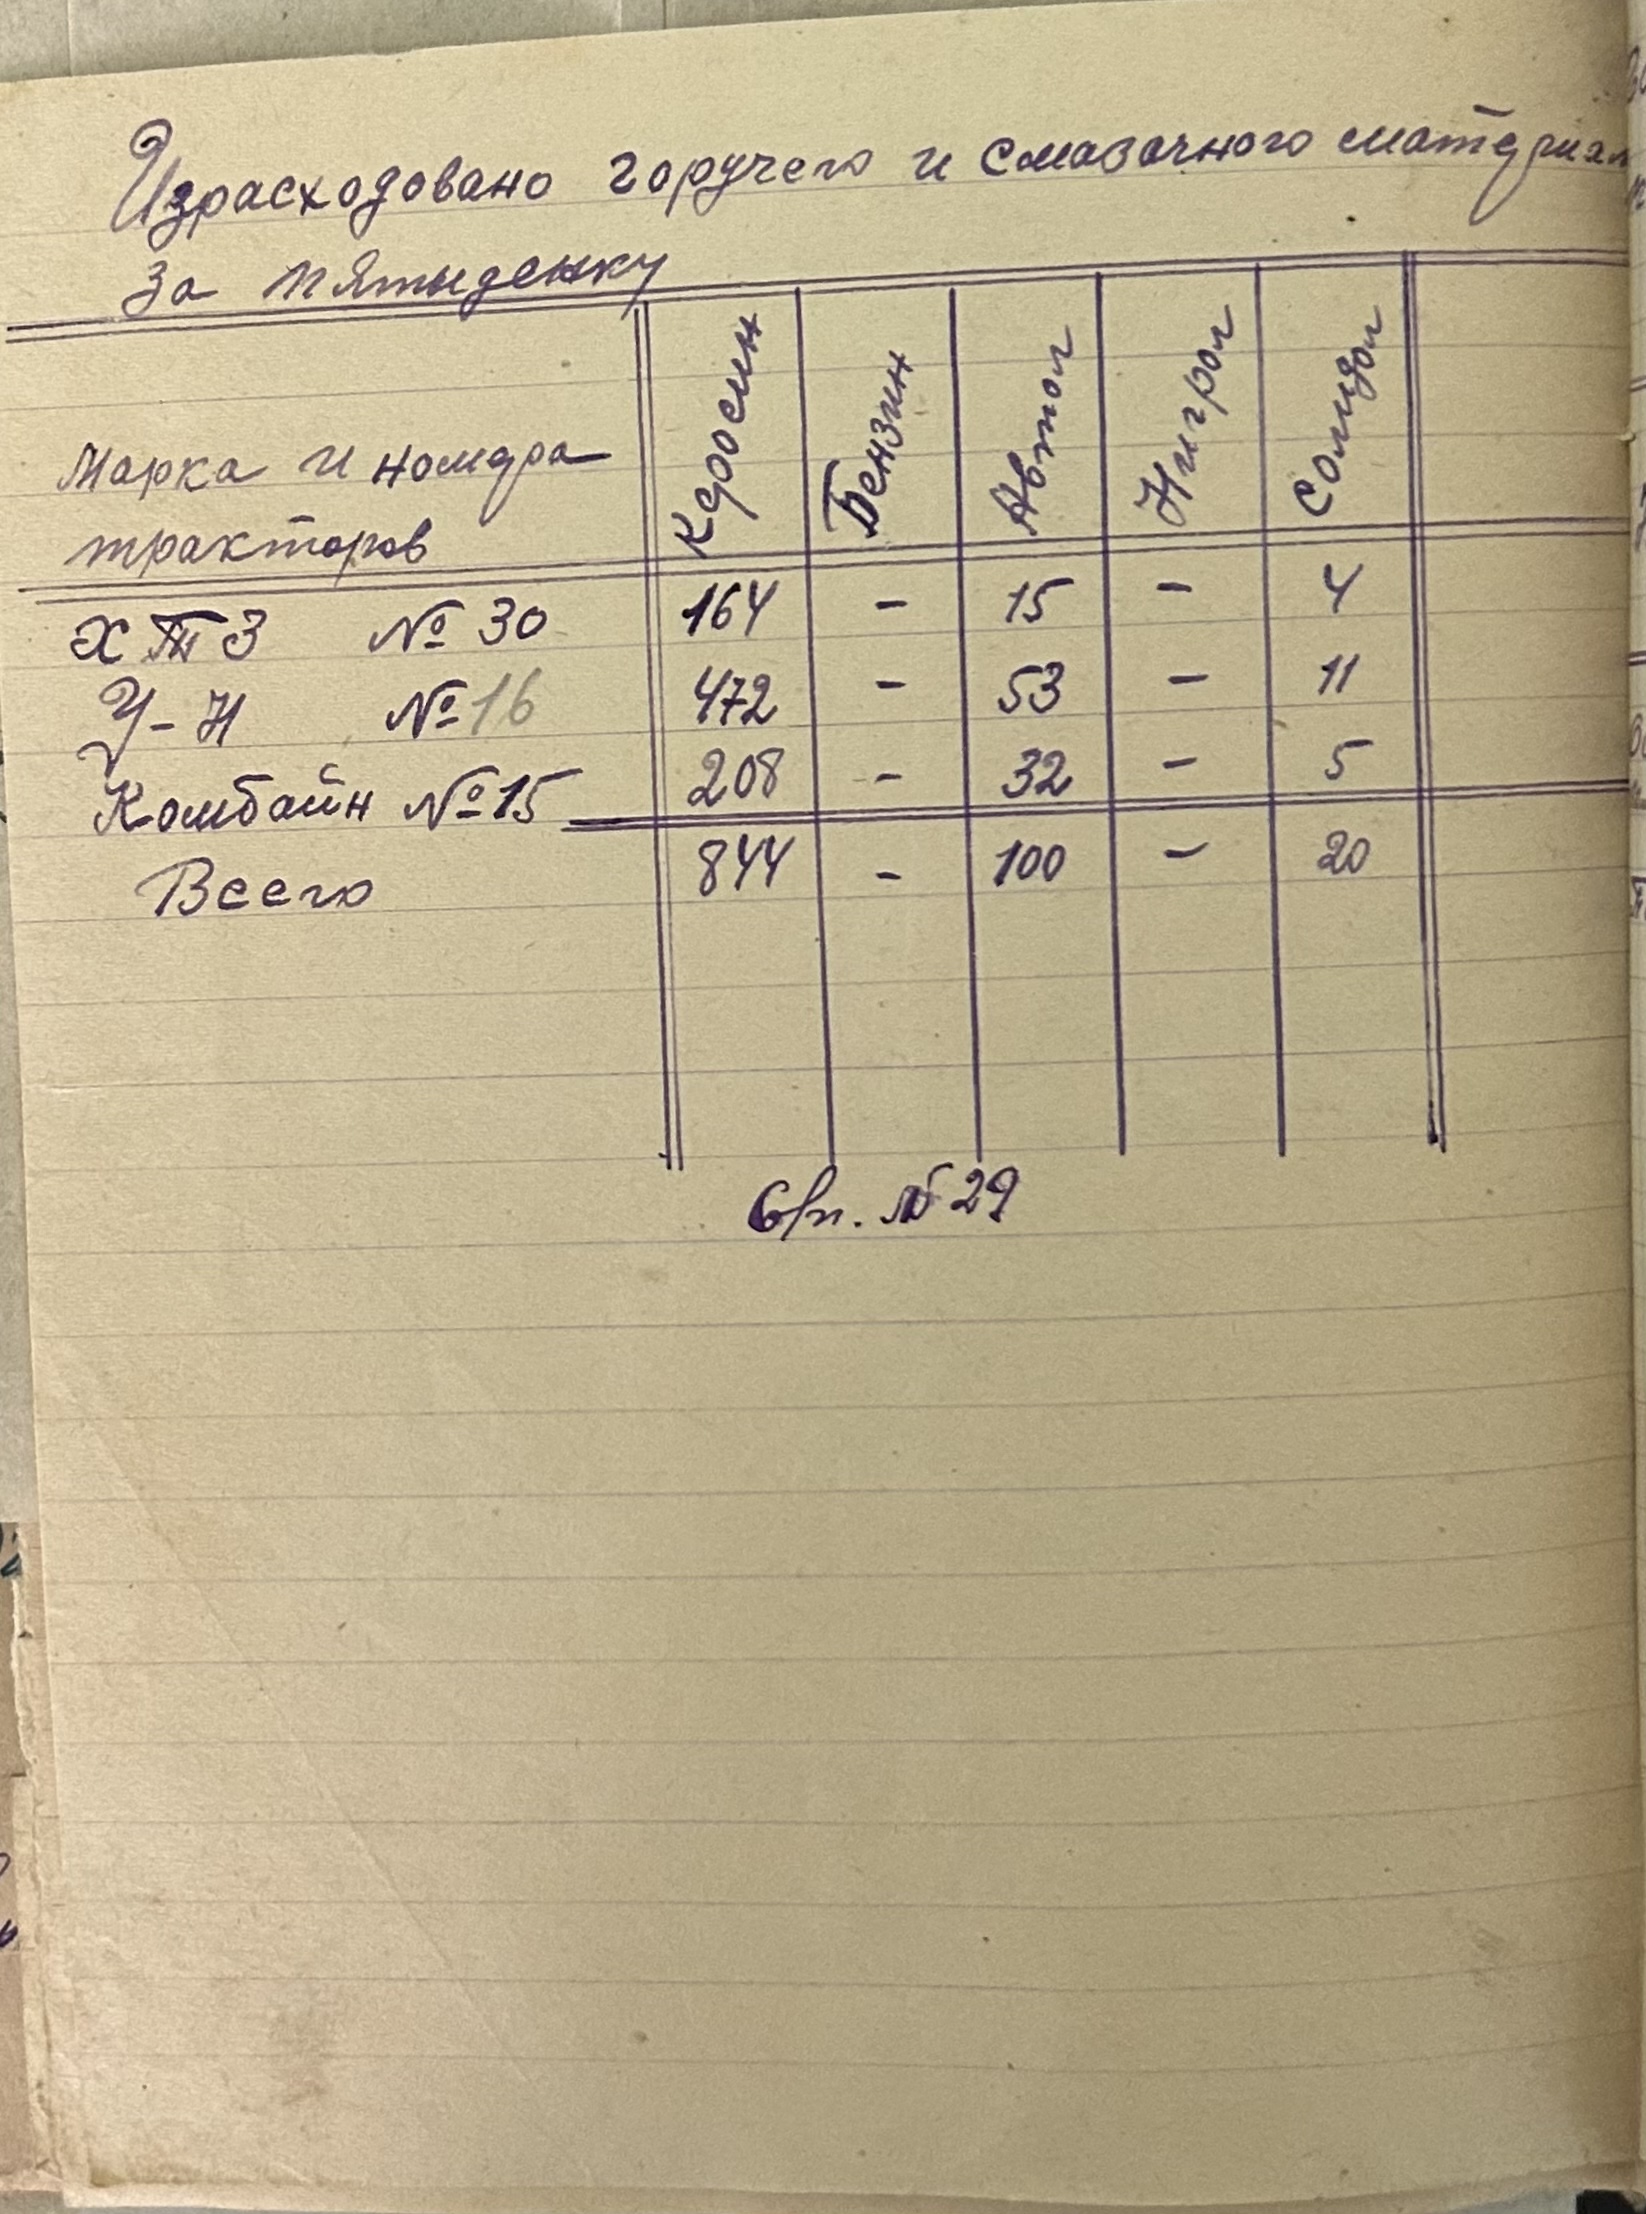 Израсходовано горучего и смазочного материал
за пятыденку
Марка и номера
тракторов
Керосин
Бензин
Автол
Нигрол
Солидол
ХТЗ № 30 164 - 15 - 4
У-Н № 16 472 - 53 - 11
Комбайн № 15 208 - 32 - 5
Всего 844 - 100 - 20
№ 29